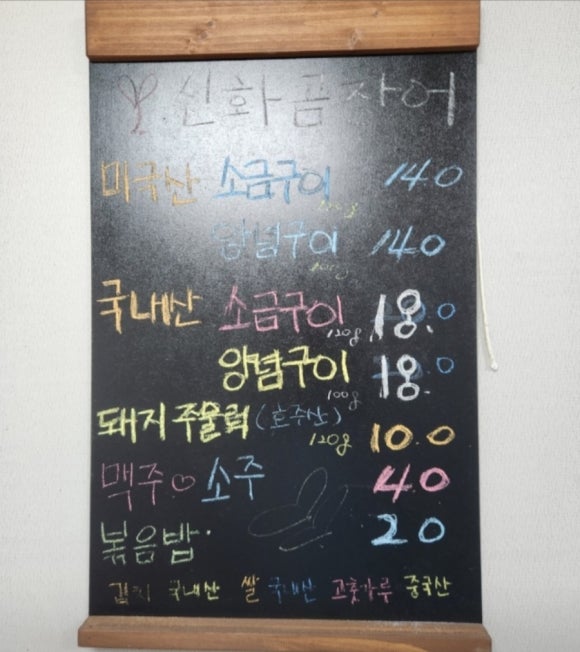 신화곰장어
미국산 소금구이 14.0
양념구이 14.0
국내산 소금구이 120g 18.0
양념구이 100g 18.0
돼지주물럭 (호주산) 120g 10.0
맥주♡소주 4.0
볶음밥. 2.0
김치 국내산 쌀 국내산 고춧가루 중국산